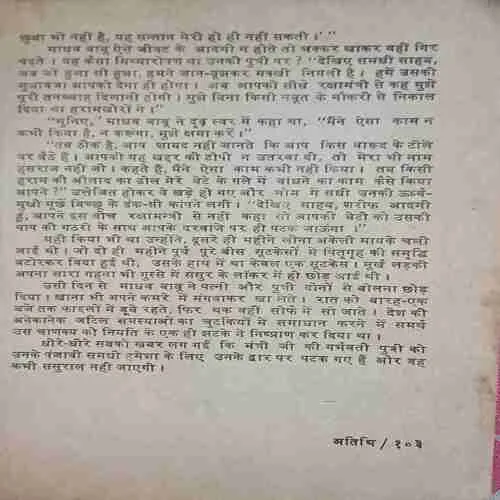 छुआ भी नहीं है, यह सन्तान मेरी हो ही नहीं सकती।'"
माधव बाबू ऐसे जीवट के आदमी न होते तो चक्कर खाकर वहीं गिर
पड़ते। यह कैसा मिथ्यारोपण था उनकी पुत्री पर? "देखिए समधी साहब,
अब जो हुआ सो हुआ, हमने जान-बूझकर मक्खी निगली है। हमें उसकी
मुआवजा आपको देना ही होगा। अब आपको सीधे रक्षामन्त्री से कह मुझे
पूरी तनख्वाह दिलानी होगी। मुझे बिना किसी सबूत के नौकरी से निकाल
दिया था हरामखोरों ने।"
"सुनिए," माधव बाबू ने दृढ़ स्वर में कहा था, "मैंने ऐसा काम न
कभी किया है, न करूँगा, मुझे क्षमा करें।"
"तब ठीक है, आप शायद नहीं जानते कि आप किस बारूद के टीले
पर बैठे हैं। आपकी यह खद्दर की टोपी न उतरवा दी, तो मेरा भी नाम
हंसराज नहीं जी। कहते हैं, मैंने ऐसा काम कभी नहीं किया। तब किसी
हराम की औलाद का ढोल मेरे बेटे के गले में बांधने का काम कैसे किया
आपने?" उत्तेजित होकर वे खड़े हो गए और मोम में सधी उनकी ऊर्ध्व-
मुखी मूंछें बिच्छू के डंक-सी कांपने लगीं। "देखिए साहब, शरीफ आदमी
हूं, आपने इस बीच रक्षामन्त्री से नहीं कहा तो आपकी बेटी को उसकी
पाप की गठरी के साथ आपके दरवाजे पर ही पटक जाऊंगा।"
यही किया भी था उन्होंने, दूसरे ही महीने लीना अकेली मायके चली
आई थी। जो दो ही महीने पूर्व पूरे बीस सूटकेसों में पितृगृह की समृद्धि
बटोरकर विदा हुई थी, उसके हाथ में था केवल एक सूटकेस। मूर्ख लड़की
अपना सारा गहना भी गुस्से में ससुर के लॉकर में ही छोड़ आई थी।
उसी दिन से माधव बाबू ने पत्नी और पुत्री दोनों से बोलना छोड़
दिया। खाना भी अपने कमरे में मंगवाकर खा लेते। रात को बारह-एक
बजे तक फाइलों में डूबे रहते, फिर थक वहीं सोफे में सो जाते। देश की
अनेकानेक जटिल समस्याओं का चुटकियों में समाधान करने में समर्थ
उस चाणक्य को नियति के एक ही झटके ने निष्प्राण कर दिया था।
धीरे-धीरे सबको खबर लग गई कि मंत्री जी की गर्भवती पुत्री को
उनके पंजाबी समधी हमेशा के लिए उनके द्वार पर पटक गए हैं और वह
कभी ससुराल नहीं जाएगी।
अतिथि / १०३